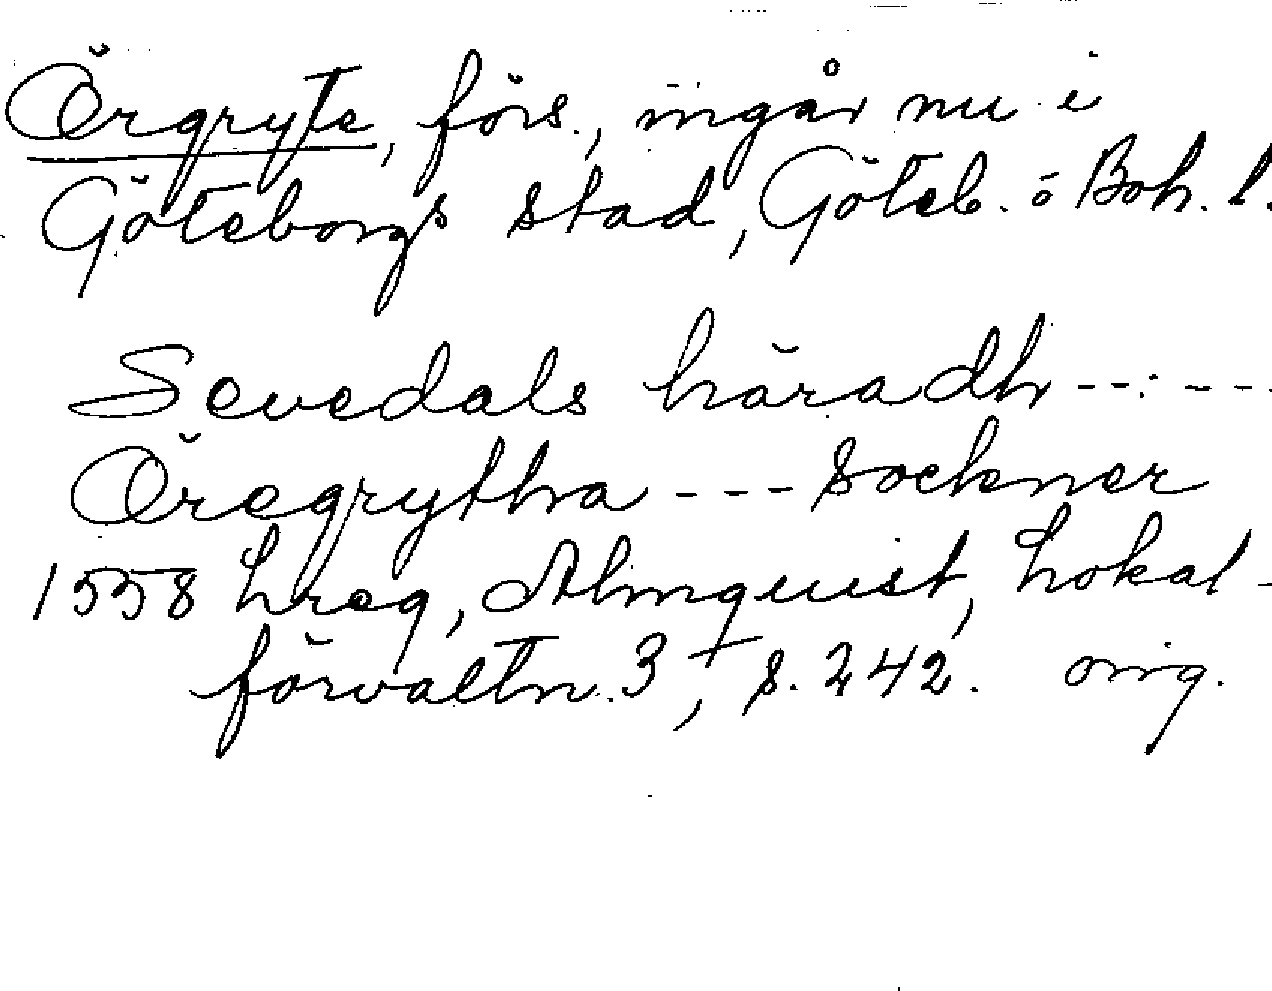 Örgryte, förs., ingår nu i
Göteborgs stad, Göteb. o Boh. l.
Sevedals häradh -- : ---
Öregrytha --- Sockner
1558 hreg, Almquist, Lokal-
förvaltn. 3, s. 242. orig.